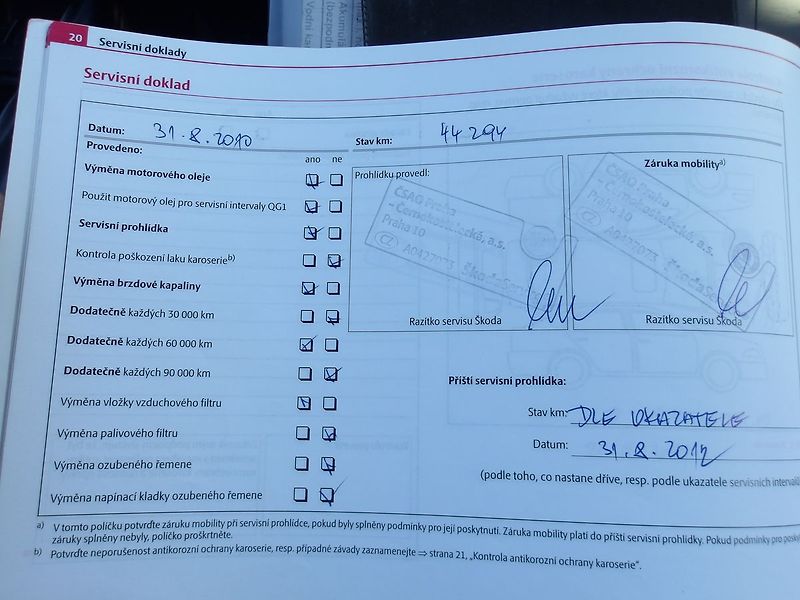 20 Servisní doklady
Servisní doklad
Datum: 31.8.2010
Stav km: 44 294
Provedeno:
ano ne
Výměna motorového oleje
Použit motorový olej pro servisní intervaly QG1
Servisní prohlídka
Kontrola poškození laku karoserie b)
Výměna brzdové kapaliny
Dodatečně každých 30 000 km
Dodatečně každých 60 000 km
Dodatečně každých 90 000 km
Výměna vložky vzduchového filtru
Výměna palivového filtru
Výměna ozubeného řemene
Výměna napínací kladky ozubeného řemene
Prohlídku provedl:
ČSAO Praha
- Černokostelecká, a.s.
Praha 10
CZ A0427073
Razítko servisu Škoda
Záruka mobility a)
ČSAO Praha
- Černokostelecká, a.s.
Praha 10
CZ A0427073
Razítko servisu Škoda
Příští servisní prohlídka:
Stav km: DLE UKAZATELE
Datum: 31.8.2012
(podle toho, co nastane dříve, resp. podle ukazatele servisních intervalů
a) V tomto políčku potvrďte záruku mobility při servisní prohlídce, pokud byly splněny podmínky pro její poskytnutí. Záruka mobility platí do příští servisní prohlídky. Pokud podmínky pro
záruky splněny nebyly, políčko proškrtněte.
b) Potvrďte neporušenost antikorozní ochrany karoserie, resp. případné závady zaznamenejte ⇒ strana 21, „Kontrola antikorozní ochrany karoserie“.